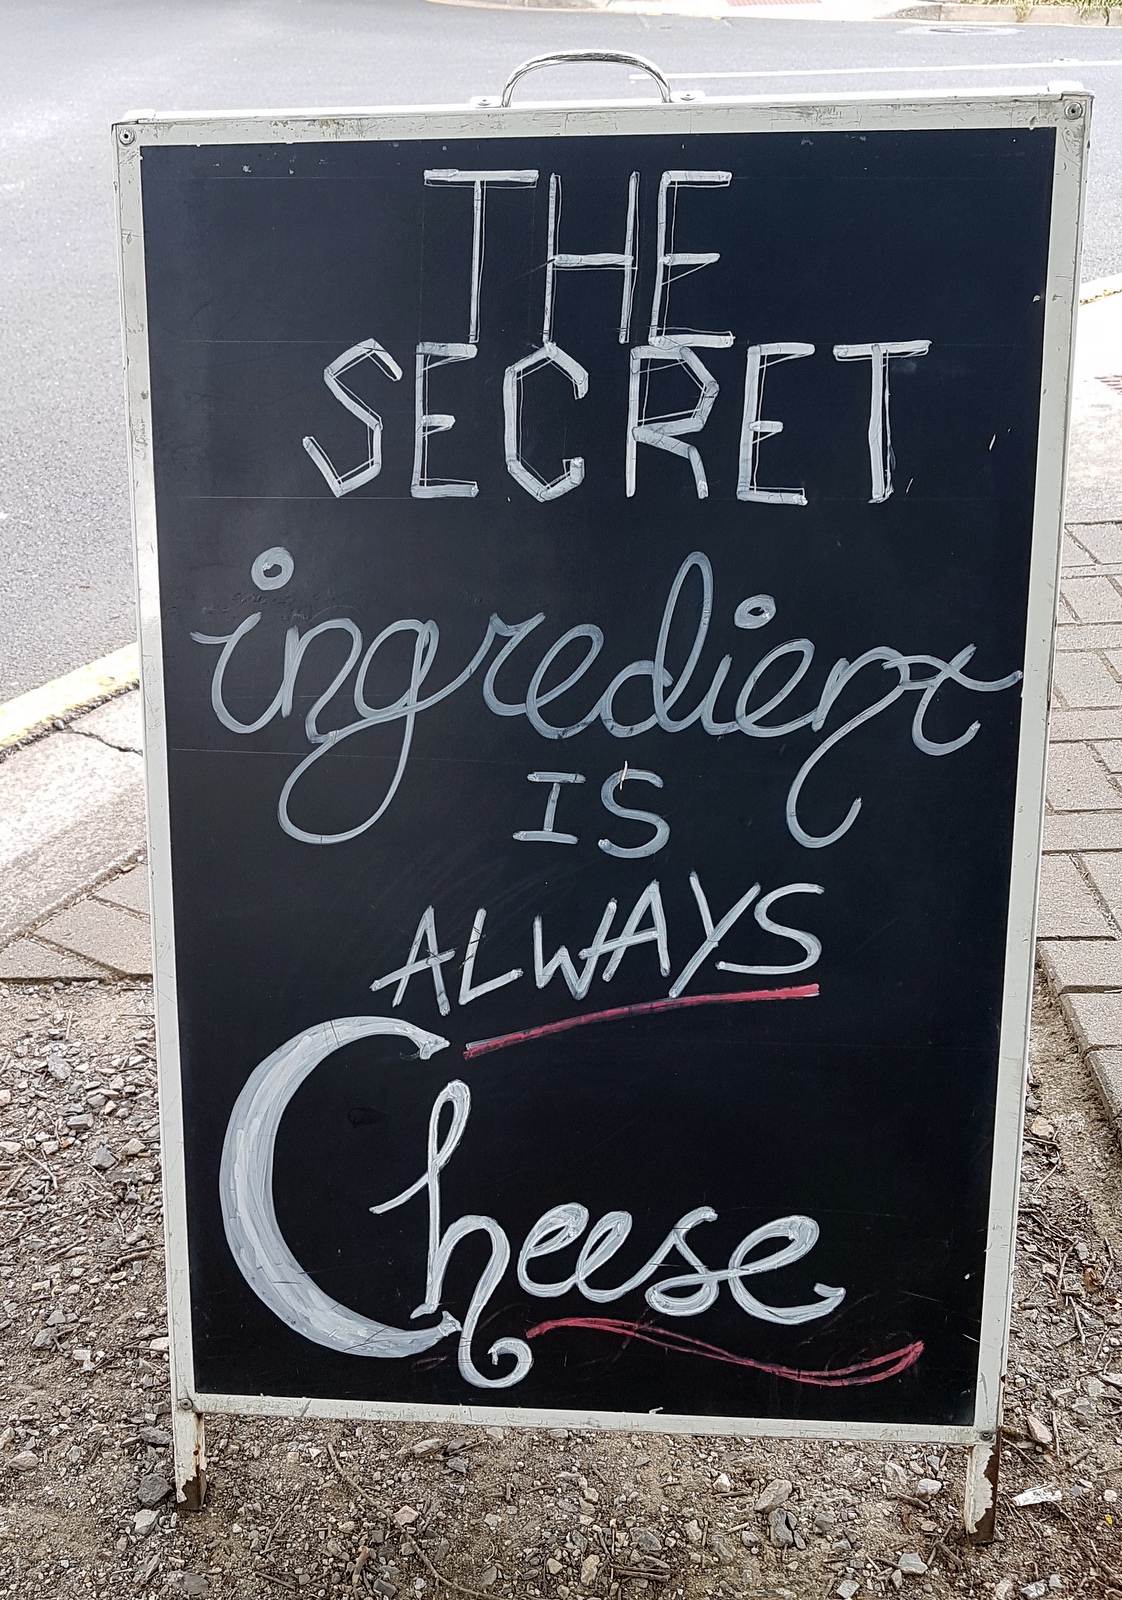 THE
SECRET
ingredient
IS
ALWAYS
Cheese